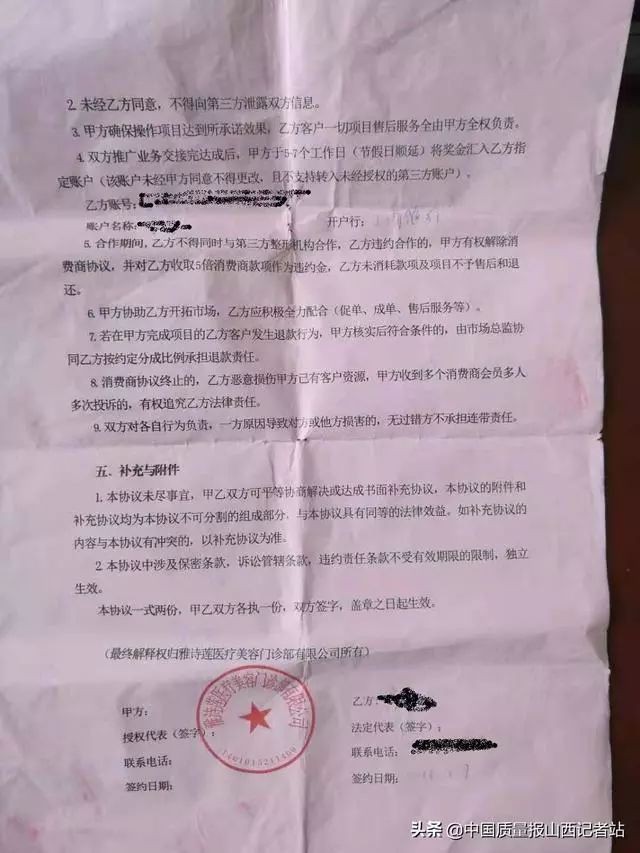 2. 未经乙方同意，不得向第三方泄露双方信息。
3. 甲方确保操作项目达到所承诺效果，乙方客户一切项目售后服务全由甲方全权负责。
4. 双方推广业务交接完达成后，甲方于5-7个工作日（节假日顺延）将奖金汇入乙方指
定账户（该账户未经甲方同意不得更改，且不支持转入未经授权的第三方账户）。
乙方账号：
账户名称：
开户行：
5. 合作期间，乙方不得同时与第三方整形机构合作，乙方违约合作的，甲方有权解除消
费商协议，并对乙方收取5倍消费商款项作为违约金，乙方未消耗款项及项目不予售后和退
还。
6. 甲方协助乙方开拓市场，乙方应积极全力配合（促单、成单、售后服务等）。
7. 若在甲方完成项目的乙方客户发生退款行为，甲方核实后符合条件的，由市场总监协
同乙方按约定分成比例承担退款责任。
8. 消费商协议终止的，乙方恶意损伤甲方已有客户资源，甲方收到多个消费商会员多人
多次投诉的，有权追究乙方法律责任。
9. 双方对各自行为负责，一方原因导致对方或他方损害的，无过错方不承担连带责任。
五、补充与附件
1. 本协议未尽事宜，甲乙双方可平等协商解决或达成书面补充协议，本协议的附件和
补充协议均为本协议不可分割的组成部分，与本协议具有同等的法律效益。如补充协议的
内容与本协议有冲突的，以补充协议为准。
2. 本协议中涉及保密条款，诉讼管辖条款，违约责任条款不受有效期限的限制，独立
生效。
本协议一式两份，甲乙双方各执一份，双方签字，盖章之日起生效。
（最终解释权归雅诗莲医疗美容门诊部有限公司所有）
甲方：
授权代表（签字）：
联系电话：
签约日期：
雅诗莲医疗美容门诊部有限公司
乙方：
法定代表（签字）：
联系电话：
签约日期：
头条 @中国质量报山西记者站